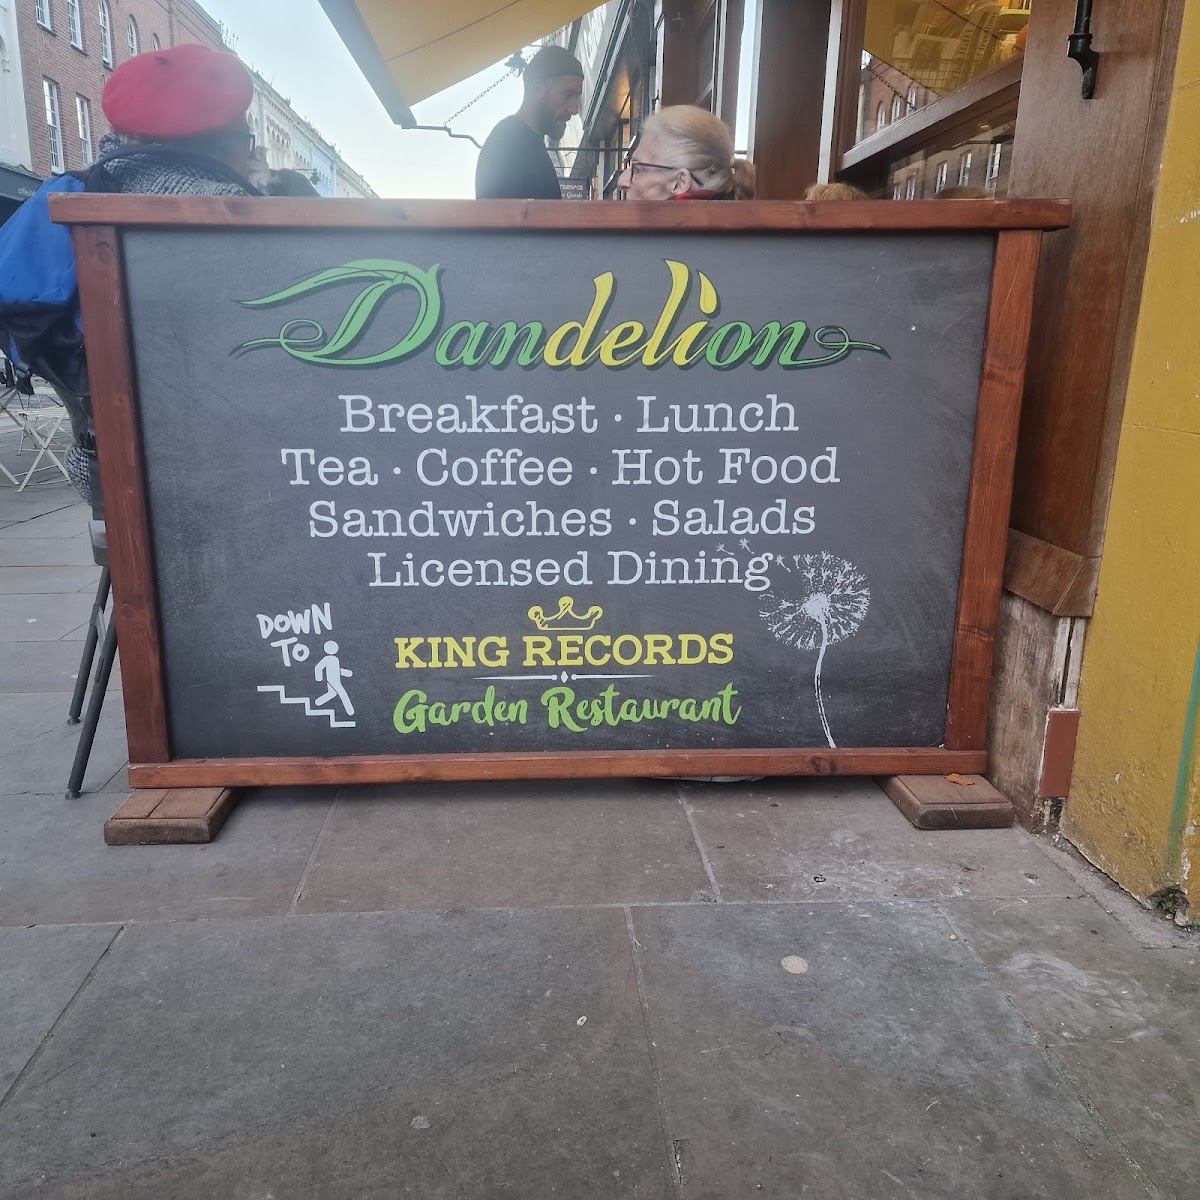 Dandelion
Breakfast · Lunch
Tea · Coffee · Hot Food
Sandwiches · Salads
Licensed Dining
DOWN
TO
KING RECORDS
Garden Restaurant